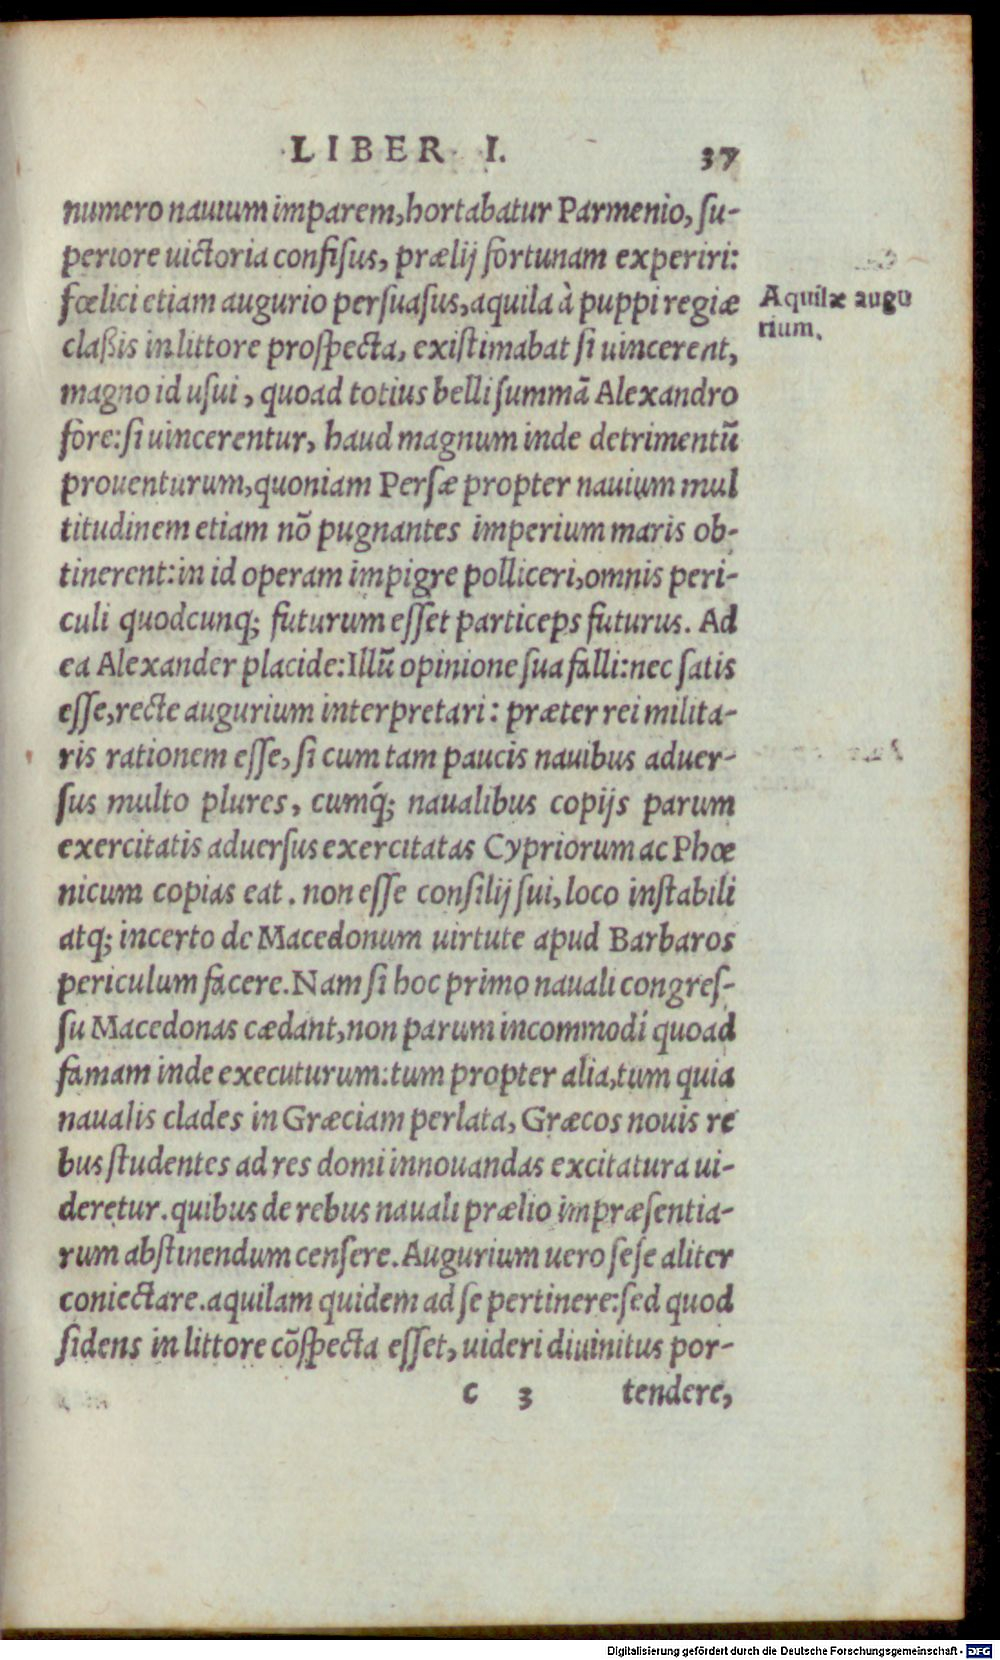 LIBER I. 37
numero nauium imparem, hortabatur Parmenio, su-
periore uictoria confisus, prælij fortunam experiri:
fœlici etiam augurio persuasus, aquila à puppi regiæ
claßis in littore prospecta, existimabat si uincerent,
magno id usui, quoad totius belli summã Alexandro
fore: si uincerentur, haud magnum inde detrimentũ
prouenturum, quoniam Persæ propter nauium mul
titudinem etiam nõ pugnantes imperium maris ob-
tinerent: in id operam impigre polliceri, omnis peri-
culi quodcunq; futurum esset particeps futurus. Ad
ea Alexander placide: Illũ opinione sua falli: nec satis
esse, recte augurium interpretari: præter rei milita-
ris rationem esse, si cum tam paucis nauibus aduer-
sus multo plures, cumq́; naualibus copijs parum
exercitatis aduersus exercitatas Cypriorum ac Phœ
nicum copias eat. non esse consilij sui, loco instabili
atq; incerto de Macedonum uirtute apud Barbaros
periculum facere. Nam si hoc primo nauali congres-
su Macedonas cædant, non parum incommodi quoad
famam inde executurum: tum propter alia, tum quia
naualis clades in Græciam perlata, Græcos nouis re
bus studentes ad res domi innouandas excitatura ui-
deretur. quibus de rebus nauali prælio impræsentia-
rum abstinendum censere. Augurium uero sese aliter
coniectare. aquilam quidem ad se pertinere: sed quod
sidens in littore cõspecta esset, uideri diuinitus por-
c 3 tendere,
Aquilæ augu
rium.
Digitalisierung gefördert durch die Deutsche Forschungsgemeinschaft - DFG